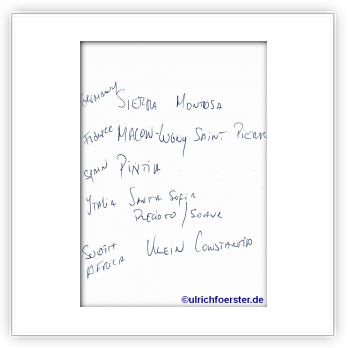 Germany Sierra Montosa
France Macon-Lugny Saint Pierre
Spain Pintia
Italia Santa Sofia
Recioto/Soave
South Africa Klein Constantia
©ulrichfoerster.de